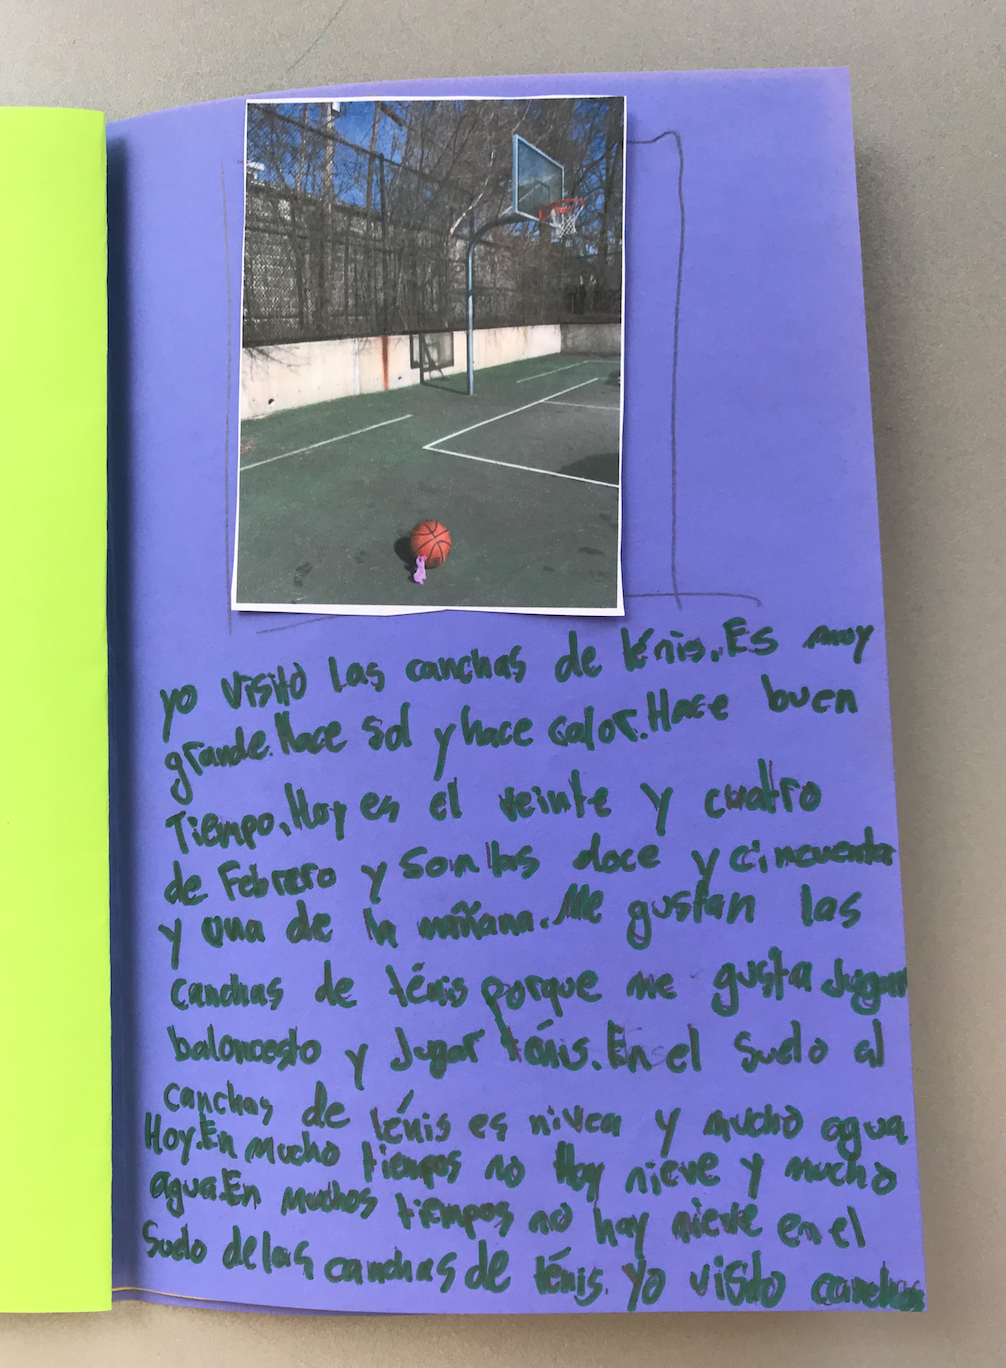 yo visito las canchas de ténis. Es muy
grande. Hace sol y hace calor. Hace buen
Tiempo. Hoy es el veinte y cuatro
de Febrero y son las doce y cincuenta
y una de la mañana. Me gustan las
canchas de ténis porque me gusta Jugar
baloncesto y Jugar ténis. En el suelo al
canchas de ténis es nivea y mucho agua
Hoy. En mucho tiempos no Hay nieve y mucho
agua. En muchos tiempos no hay nieve en el
suelo de las canchas de ténis. yo visito canchas